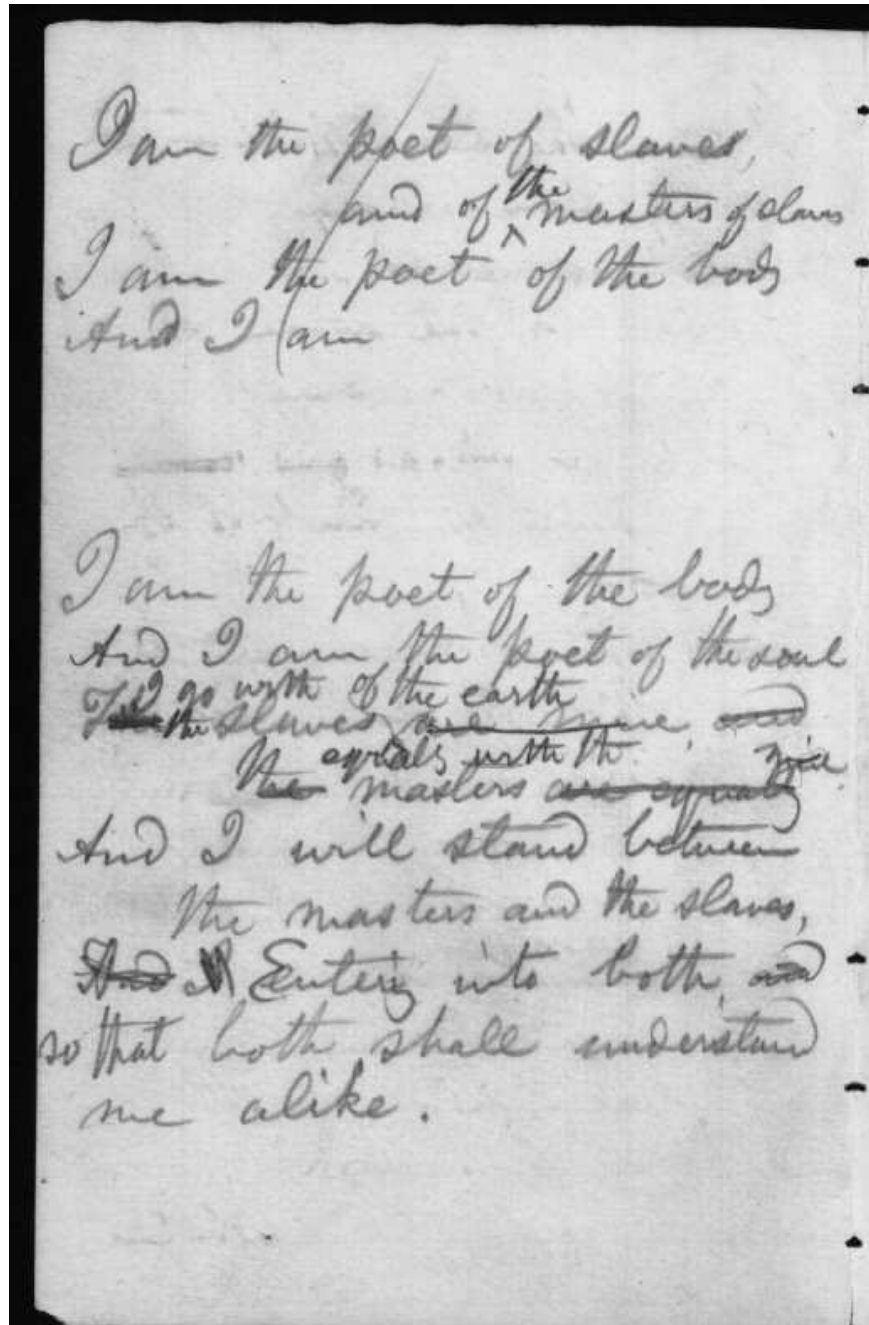 I am the poet of slaves,
and of the masters of slaves
I am the poet of the body
And I am
I am the poet of the body
And I am the poet of the soul
I go with of the earth
the slaves are mine, and
equals with the
The masters are equally
And I will stand between
the masters and the slaves,
And I Entering into both, and
so that both shall understand
me alike.